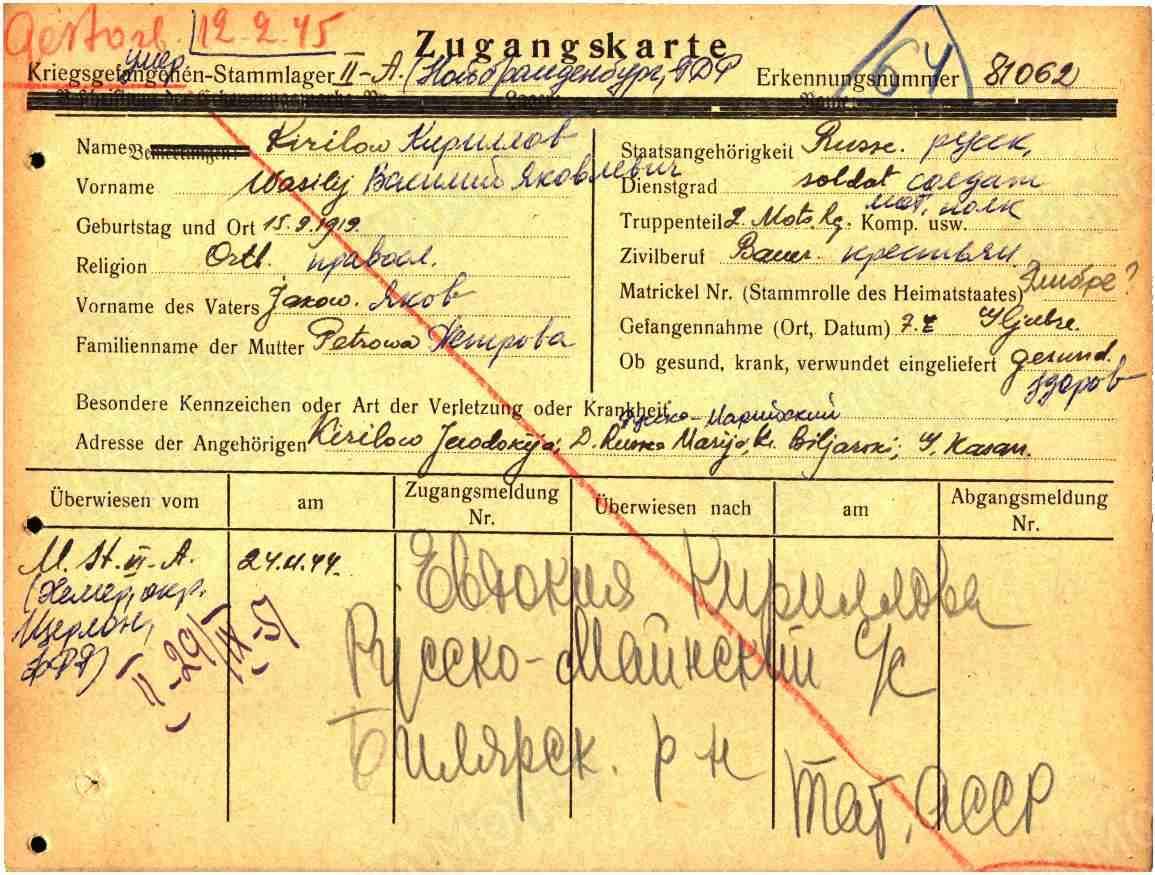 Gestorb. 12-2-45
умер
Zugangskarte
64
Kriegsgefangenen-Stammlager II-A. (Нойбранденбург, ГДР Erkennungsnummer 81062
Name Kirilow Кириллов
Vorname Wasilij Василий Яковлевич
Geburtstag und Ort 15.9.1919.
Religion Orth. правосл.
Vorname des Vaters Jakow. Яков
Familienname der Mutter Petrowa Петрова
Staatsangehörigkeit Russe. русск.
Dienstgrad soldat солдат
мот. полк
Truppenteil 2. Mots. Rg. Komp. usw.
Zivilberuf Bauer. крестьян.
Matrickel Nr. (Stammrolle des Heimatstaates)
Gefangennahme (Ort, Datum)
Ob gesund, krank, verwundet eingeliefert gesund.
здоров
Besondere Kennzeichen oder Art der Verletzung oder Krankheit
Русско-Марийский
Adresse der Angehörigen Kirilow D. Kasan.
Überwiesen vom am Zugangsmeldung Nr. Überwiesen nach am Abgangsmeldung Nr.
M. St. VI-A. 24.11.44.
(Хемер, окр.
Изерлон,
ФРГ)
II-29/IX-51
Евдокия Кириллова
Русско-Маинский с/с
Билярск. р-н
Тат. АССР